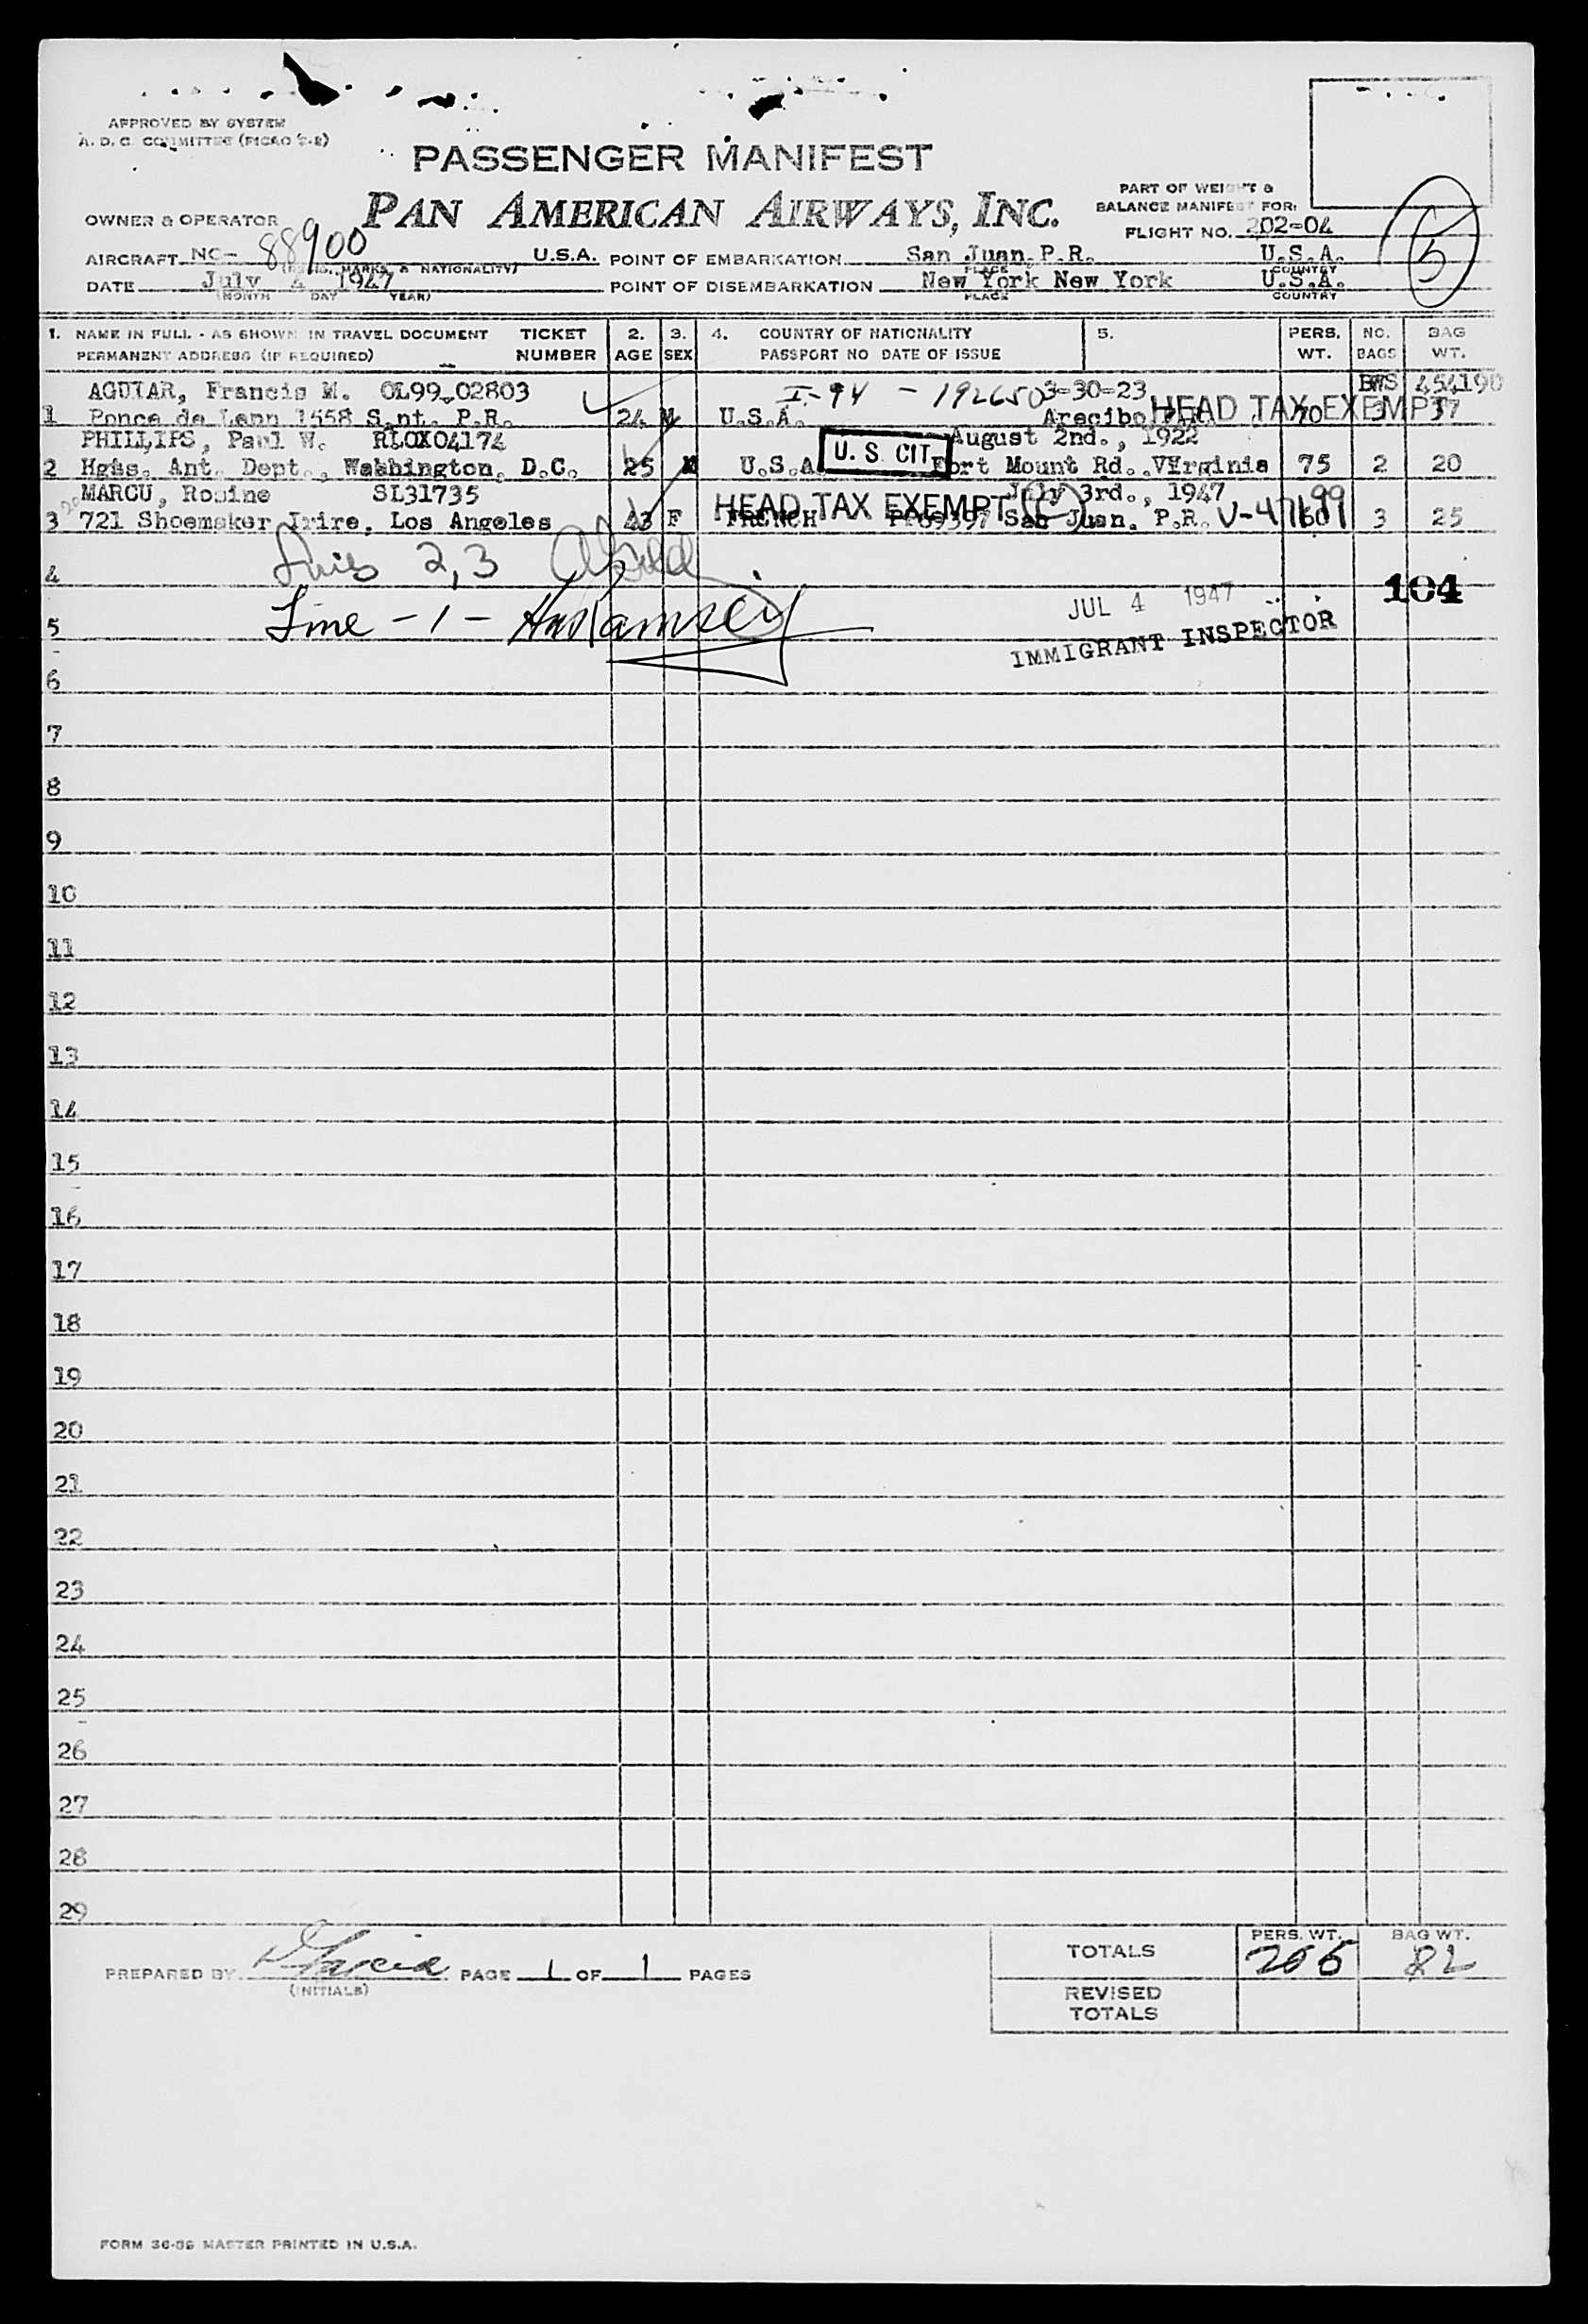 APPROVED BY SYSTEM
A. D. C. COMMITTEE (PICAO
PASSENGER MANIFEST
PAN AMERICAN AIRWAYS, INC.
PART OF WEIGHT &
BALANCE MANIFEST FOR:
FLIGHT NO. 202-04
5
OWNER & OPERATOR
AIRCRAFT NC- 88900 U.S.A. POINT OF EMBARKATION San Juan, P.R. U.S.A.
MARKS & NATIONALITY) PLACE COUNTRY
DATE July 4 1947 POINT OF DISEMBARKATION New York New York U.S.A.
(MONTH DAY YEAR) PLACE COUNTRY
1. NAME IN FULL - AS SHOWN IN TRAVEL DOCUMENT TICKET 2. 3. 4. COUNTRY OF NATIONALITY 5. PERS. NO. BAG
PERMANENT ADDRESS (IF REQUIRED) NUMBER AGE SEX PASSPORT NO DATE OF ISSUE WT. BAGS WT.
AGUIAR, Francis M. OL99-02803 I-94 - 192650 3-30-23 BWS 454190
1 Ponce de Leon 1558 Sant. P.R. 24 M U.S.A. Arecibo P.R. HEAD TAX EXEMPT 70 3 37
PHILLIPS, Paul W. RLOX04174 August 2nd., 1922
2 Hqhs. Ant. Dept., Washington, D.C. 25 M U.S.A. U. S. CIT Fort Mount Rd. Virginia 75 2 20
MARCU, Rosine SL31735 HEAD TAX EXEMPT (C) July 3rd., 1947
3 721 Shoemaker Drire, Los Angeles 43 F FRENCH San Juan, P.R. 60 3 25
4 2,3
5 Line -1-
JUL 4 1947
104
IMMIGRANT INSPECTOR
6
7
8
9
10
11
12
13
14
15
16
17
18
19
20
21
22
23
24
25
26
27
28
29
PREPARED BY Garcia PAGE 1 OF 1 PAGES
(INITIALS)
PERS. WT. BAG WT.
TOTALS 205 82
REVISED
TOTALS
FORM MASTER PRINTED IN U.S.A.